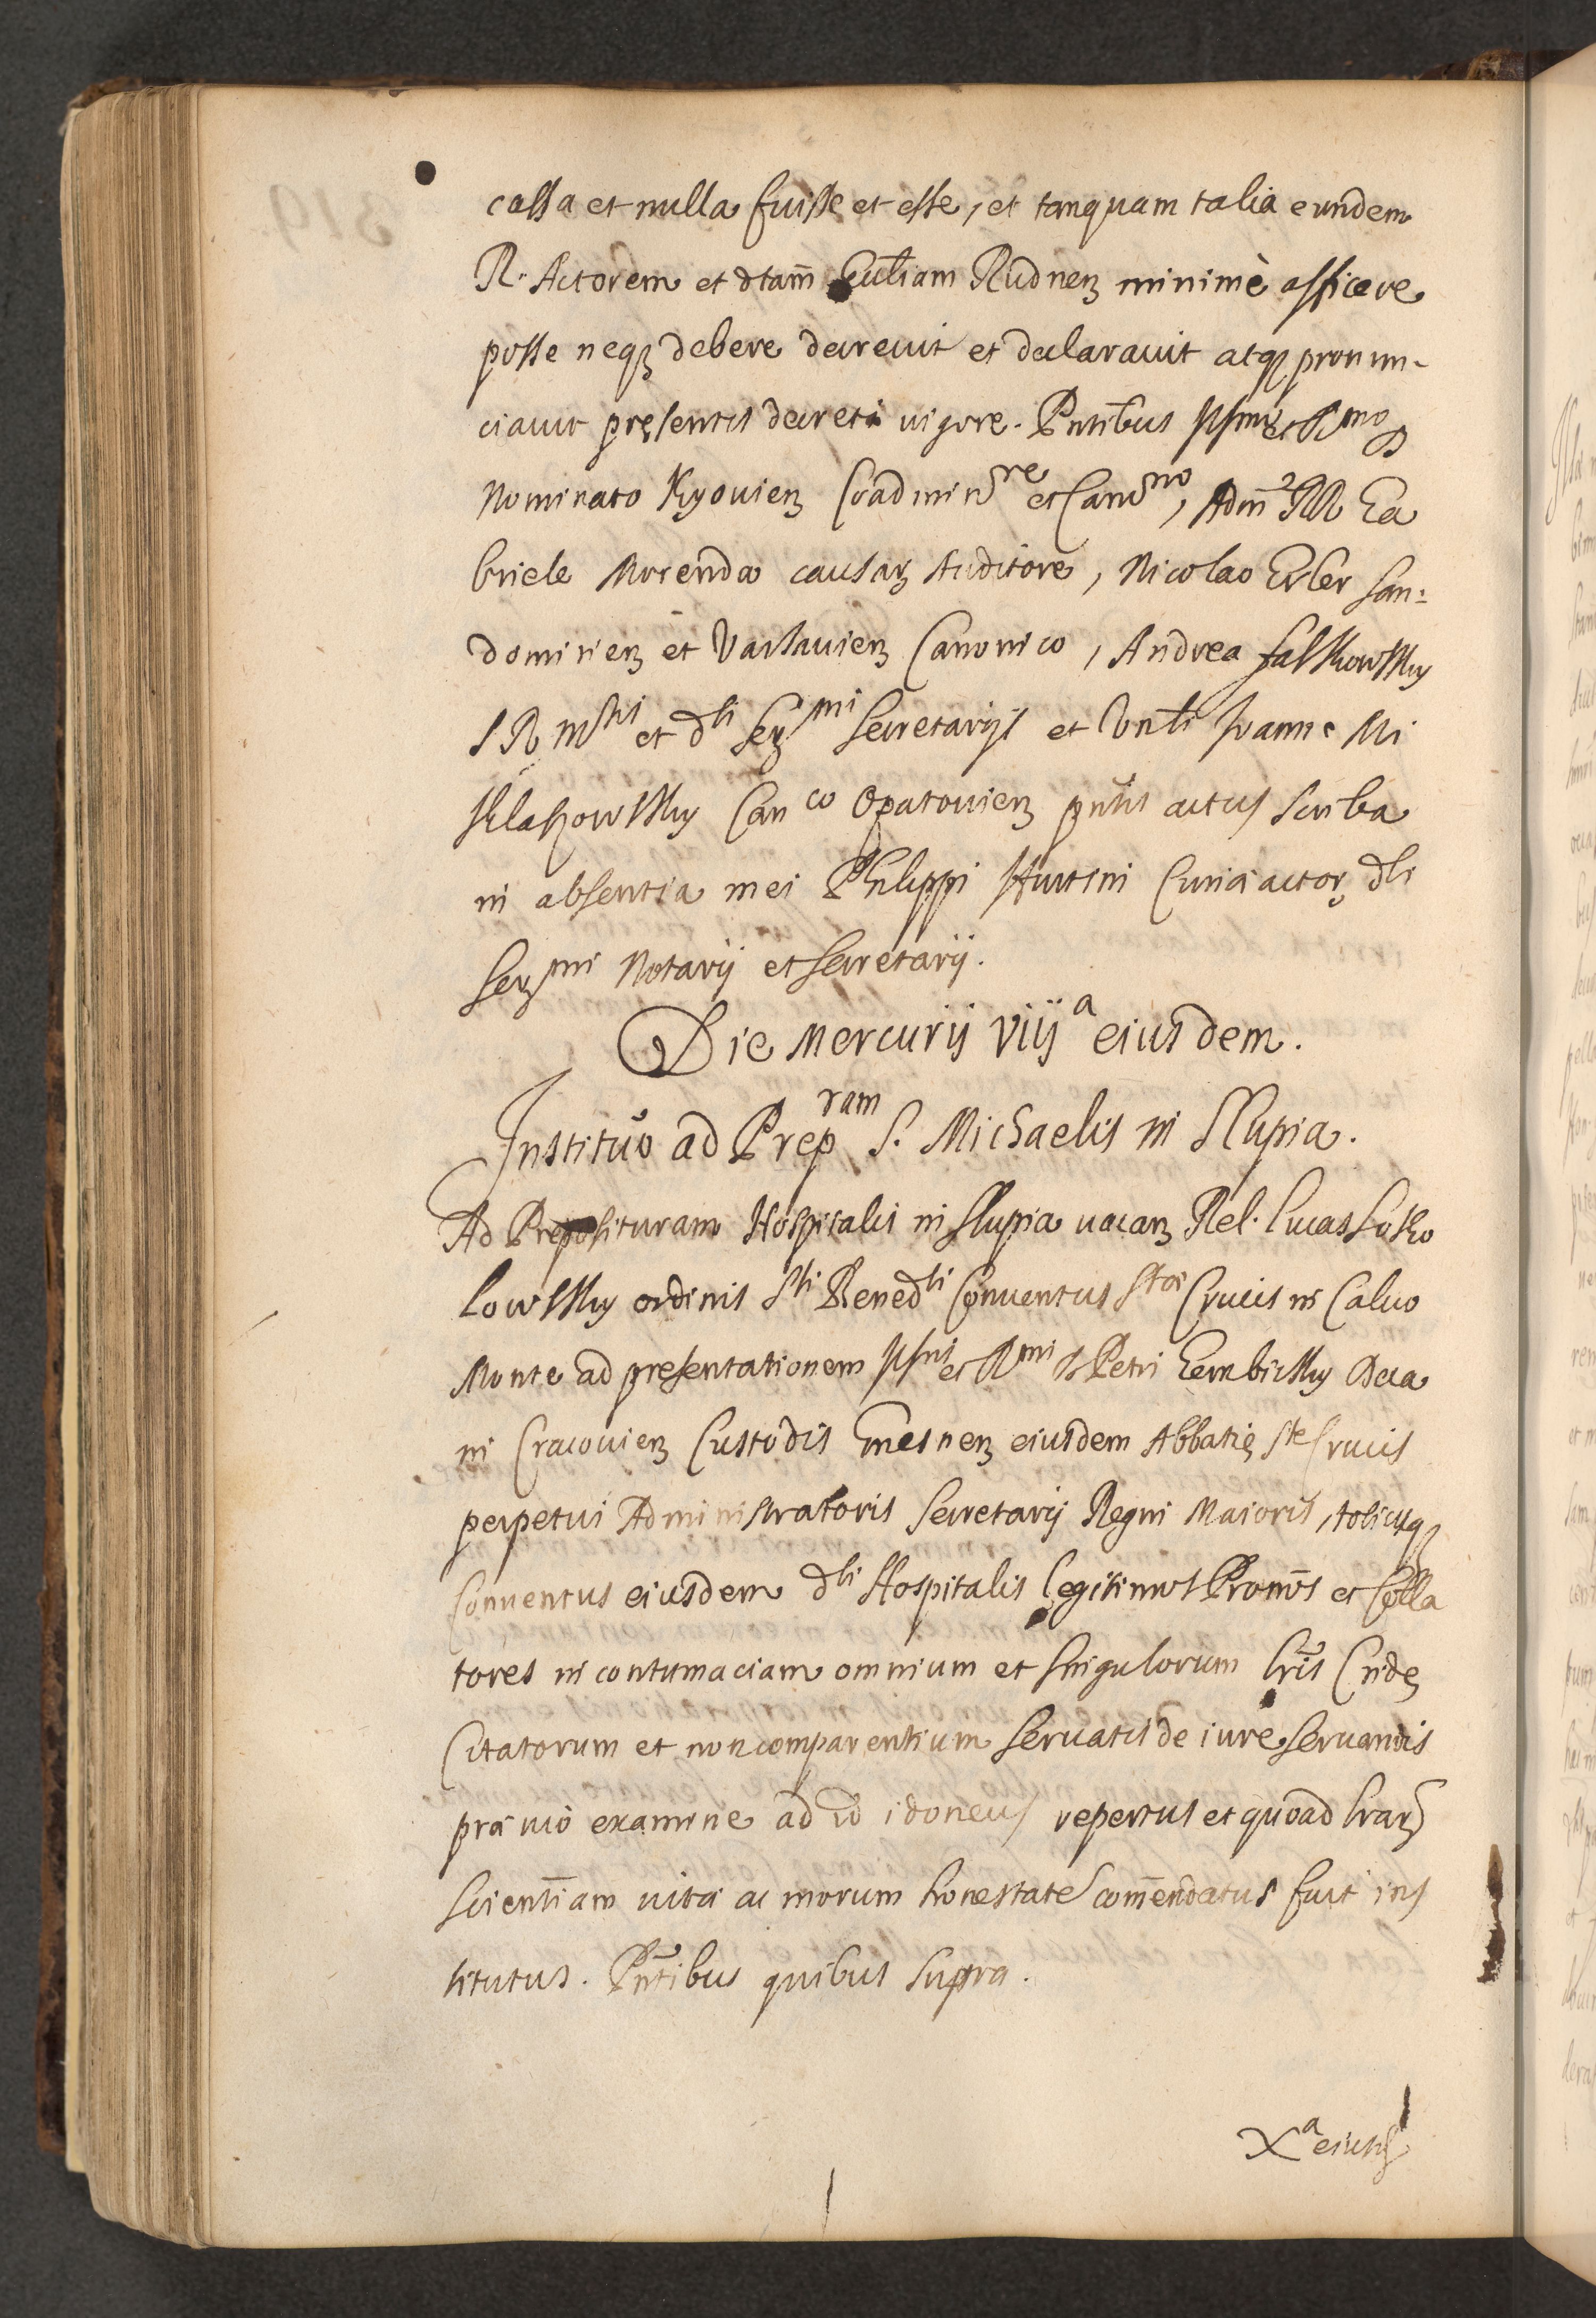 cassa et nulla fuisse et esse, et tanquam talia eundem
R. Actorem et dtam̄ Ecc̄liam Rudnen minimè afficere
posse neq₃ debere decreuit et declarauit atq₃ pronun-
ciauit pręsentis decreti uigore. Pntibus Illmo et Rmo D
Nominato Kyouien Coadminre et Cancno, Adm RR Ga
briele Morenda causar Auditore, Nicolao Erler San:
domirien et Varsauien Canonico, Andrea Falkowsky
S R Mtis et dti Sermi Secretarijs et Vnli Joanne Mi
sklahowsky Canco Opatouien pntis actus scriba
in absentia mei Philippi Hurtini Curiæ actor dti
Sermi Notarij et Secretarij.
Die Mercurij Viija eiusdem.
Institũo ad Prepram S. Michaelis in Slupia.
Ad Preposituram Hospitalis in Slupia uacan Rel. Lucas Soko
lowsky ordinis Sti Benedti Conuentus Stæ Crucis in Caluo
Monte ad presentationem Illmi et Rmi D Petri Gembicky Deca
ni Cracouien Custodis Gnesnen eiusdem Abbatię Ste Crucis
perpetui Administratoris Secretarij Regni Maioris, totiusq₃
Conuentus eiusdem dti Hospitalis legitimos Pron̄os et Colla
tores in contumaciam omnium et singulorum lr̄is Cridę
Citatorum et non comparentium seruatis de iure seruandis
præuio examine ad id idoneus repertus et quoad lrar
scientiam uitæ ac morum honestate com̄endatus fuit ins
titutus. Pn̄tibus quibus supra.
Xa eiusd